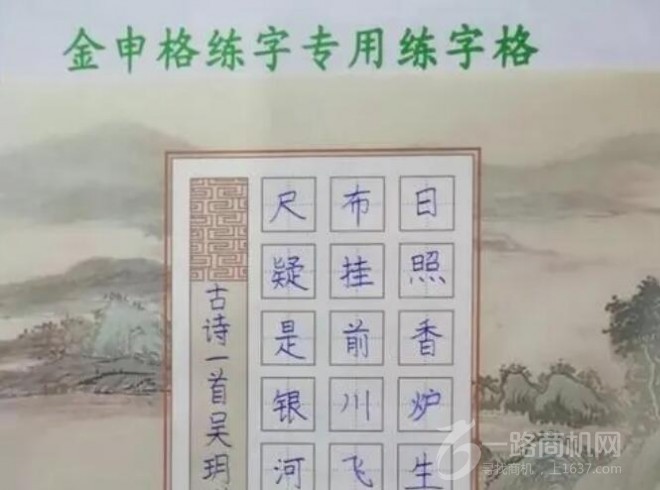 金申格练字专用练字格
日照香炉生
布挂前川飞
尺疑是银河
古诗一首吴玥
一路商机网
寻找商机，上1637.com!